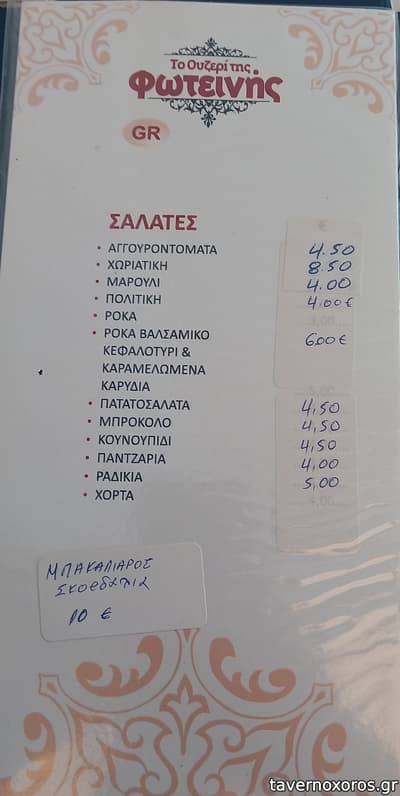 Το Ουζερί της
Φωτεινής
GR
ΣΑΛΑΤΕΣ
• ΑΓΓΟΥΡΟΝΤΟΜΑΤΑ 4.50
• ΧΩΡΙΑΤΙΚΗ 8.50
• ΜΑΡΟΥΛΙ 4.00
• ΠΟΛΙΤΙΚΗ 4,00 €
• ΡΟΚΑ
• ΡΟΚΑ ΒΑΛΣΑΜΙΚΟ 6.00 €
ΚΕΦΑΛΟΤΥΡΙ &
ΚΑΡΑΜΕΛΩΜΕΝΑ
ΚΑΡΥΔΙΑ
• ΠΑΤΑΤΟΣΑΛΑΤΑ 4,50
• ΜΠΡΟΚΟΛΟ 4,50
• ΚΟΥΝΟΥΠΙΔΙ 4,50
• ΠΑΝΤΖΑΡΙΑ 4,00
• ΡΑΔΙΚΙΑ 5,00
• ΧΟΡΤΑ
ΜΠΑΚΑΛΙΑΡΟΣ
10 €
tavernoxoros.gr